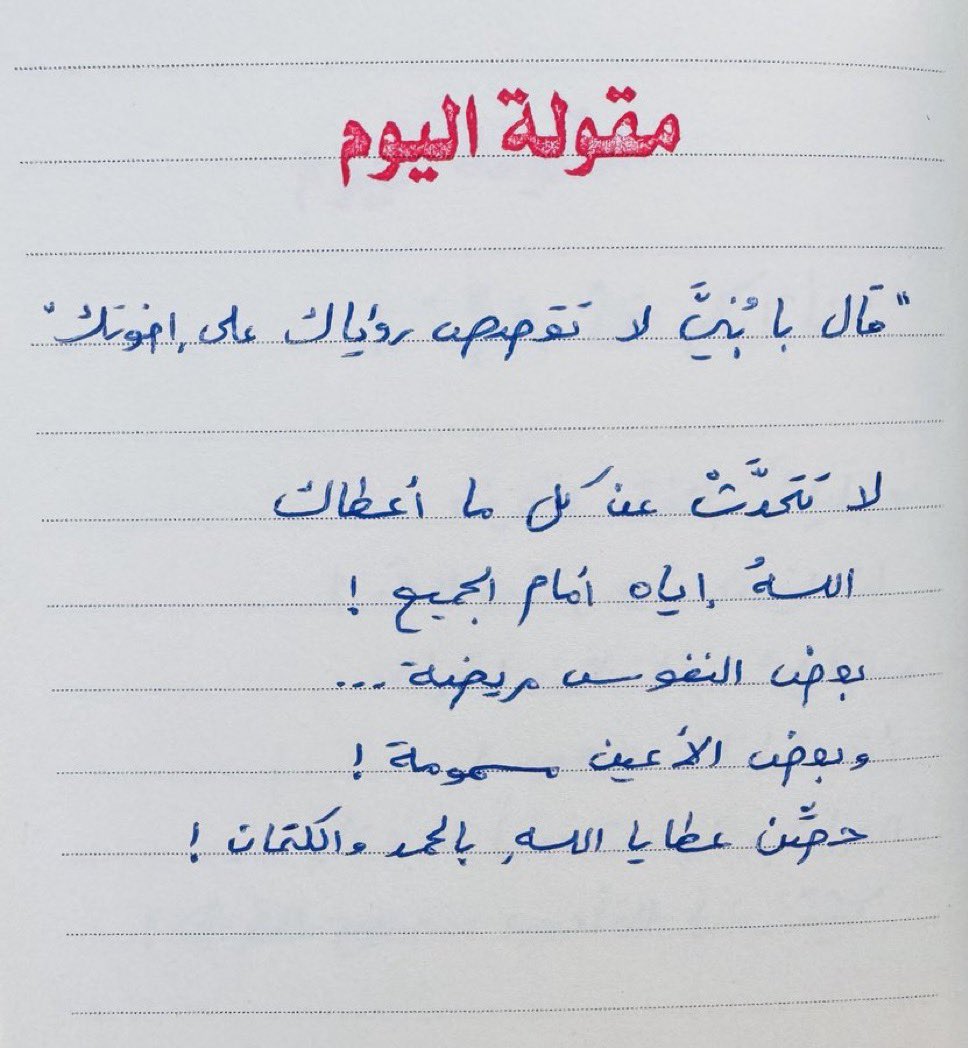 مقولة اليوم
"قال يا بُنيَّ لا تَقصص رؤياك على إخوتك"
لا تَتَحدَّثْ عن كل ما أعطاك
اللهُ إياه أمام الجميع !
بعض النفوس مريضة ...
وبعض الأعين مسمومة !
حصِّن عطايا اللهِ بالحمد والكتمان !